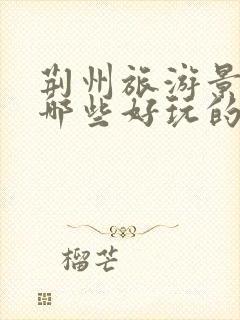 荆州旅游景
哪些好玩的
榴芒